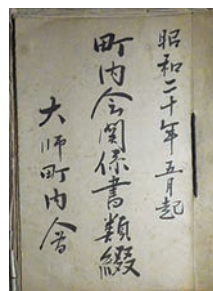 昭和二十年五月起
町内会関係書類綴
大師町内會